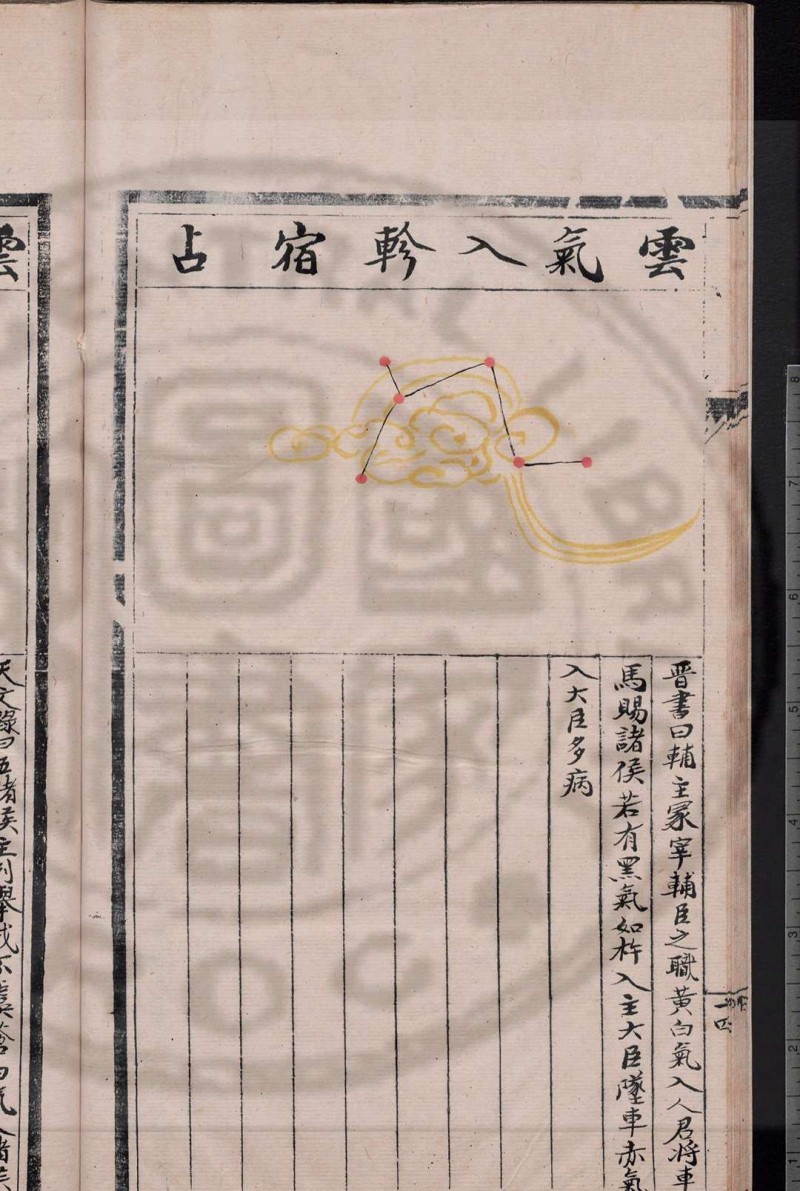 雲氣入軫宿占
晋書曰輔主冢宰輔臣之職黃白氣入人君將車
馬賜諸侯若有黑氣如杵入主大臣墜車赤氣
入大臣多病
雲
天文錄曰五諸侯主刺舉戒不虞蒼白氣入諸侯